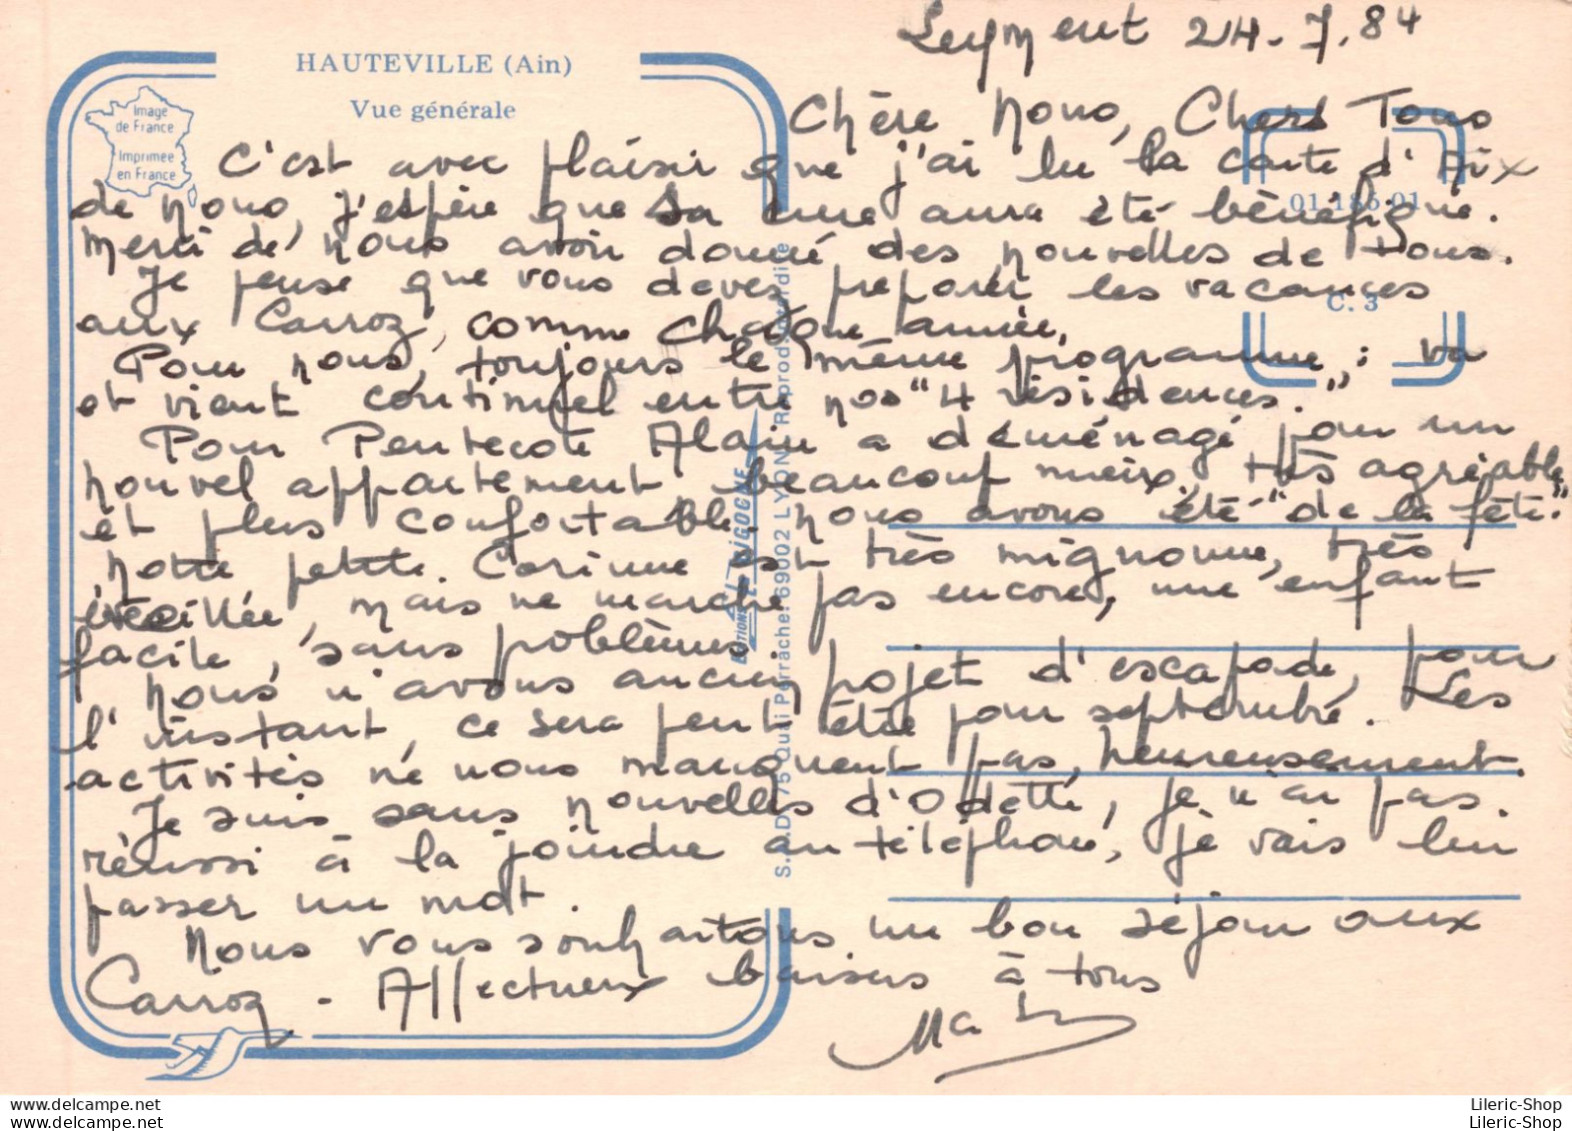 Leyment 24.7.84
HAUTEVILLE (Ain)
Vue générale
Image
de France
Imprimée
en France
Chère Nono, Chers Tous
C'est avec plaisir que j'ai lu la carte d'Aix
de Nono, j'espère que sa cure aura été bénéfique.
Merci de nous avoir donné des nouvelles de tous.
Je pense que vous devez préparer les vacances
aux Carroz, comme chaque année.
Pour nous, toujours le même programme : va
et vient continuel entre nos "4 résidences."
Pour Pentecote Alain a déménagé pour un
nouvel appartement beaucoup mieux, très agréable
et plus confortable. Nous avons été "de la fête."
Notre petite Corinne est très mignonne, très
éveillée, mais ne marche pas encore, une enfant
facile, sans problèmes.
Nous n'avons aucun projet d'escapade, pour
l'instant, ce sera peut être pour septembre. Les
activités ne nous manquent pas, heureusement.
Je suis sans nouvelles d'Odette, je n'ai pas
réussi à la joindre au téléphone, je vais lui
passer un mot.
Nous vous souhaitons un bon séjour aux
Carroz - Affectueux baisers à tous
01.185.01
C. 3
EDITIONS LA CIGOGNE
S.A.D. 75 Quai Perrache. 69002 LYON - Reprod. interdite
Lileric-Shop
Lileric-Shop
Lileric-Shop
Lileric-Shop